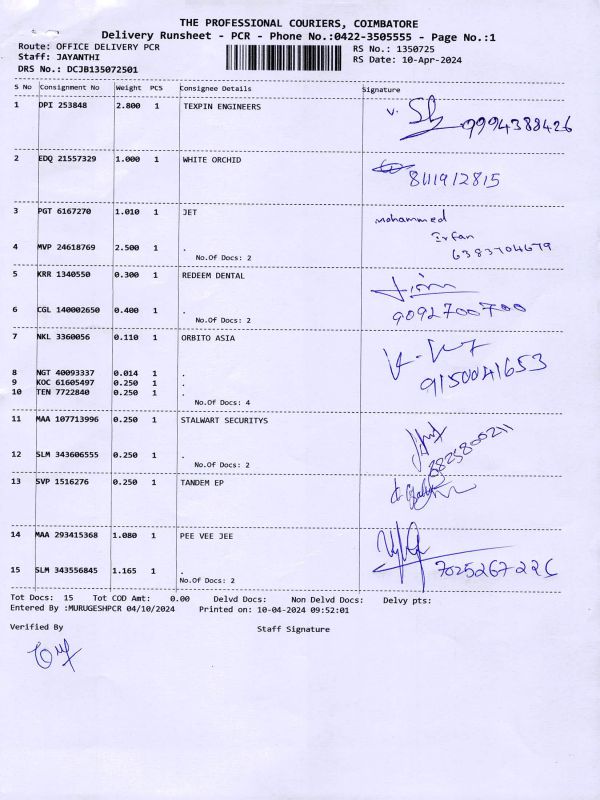 THE PROFESSIONAL COURIERS, COIMBATORE
Delivery Runsheet - PCR - Phone No.:0422-3505555 - Page No.:1
Route: OFFICE DELIVERY PCR
RS No.: 1350725
Staff: JAYANTHI
RS Date: 10-Apr-2024
DRS No.: DCJB135072501
S No Consignment No Weight PCS Consignee Details Signature
1 DPI 253848 2.800 1 TEXPIN ENGINEERS
9994388426
2 EDQ 21557329 1.000 1 WHITE ORCHID
8111912815
3 PGT 6167270 1.010 1 JET
Mohammed
Irfan
4 MVP 24618769 2.500 1 .
6383704679
No.Of Docs: 2
5 KRR 1340550 0.300 1 REDEEM DENTAL
6 CGL 140002650 0.400 1 .
9092700700
No.Of Docs: 2
7 NKL 3360056 0.110 1 ORBITO ASIA
8 NGT 40093337 0.014 1 .
9 KOC 61605497 0.250 1 .
10 TEN 7722840 0.250 1 .
9150041653
No.Of Docs: 4
11 MAA 107713996 0.250 1 STALWART SECURITYS
12 SLM 343606555 0.250 1 .
No.Of Docs: 2
13 SVP 1516276 0.250 1 TANDEM EP
14 MAA 293415368 1.080 1 PEE VEE JEE
15 SLM 343556845 1.165 1 .
No.Of Docs: 2
Tot Docs: 15 Tot COD Amt: 0.00 Delvd Docs: Non Delvd Docs: Delvy pts:
Entered By :MURUGESHPCR 04/10/2024 Printed on: 10-04-2024 09:52:01
Verified By
Staff Signature